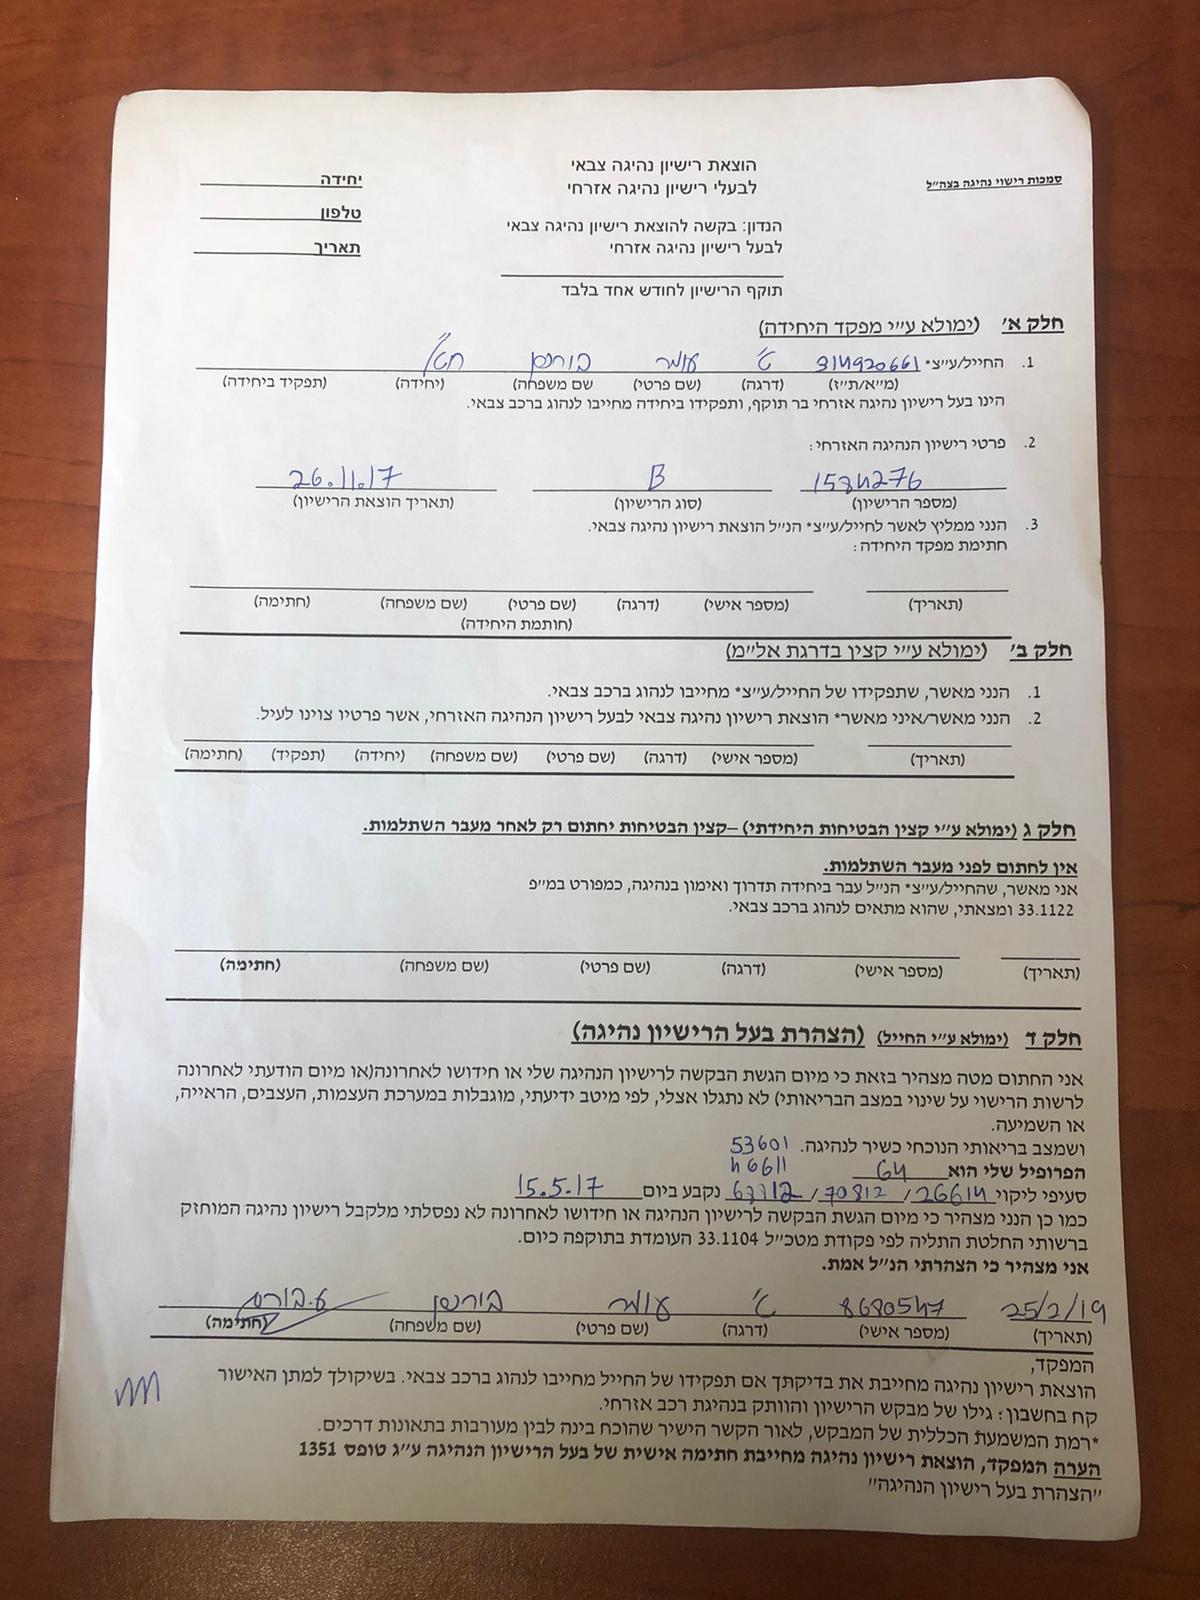 סמכות רישוי נהיגה בצה"ל
הוצאת רישיון נהיגה צבאי
לבעלי רישיון נהיגה אזרחי
יחידה
טלפון
תאריך
הנדון: בקשה להוצאת רישיון נהיגה צבאי
לבעל רישיון נהיגה אזרחי
תוקף הרישיון לחודש אחד בלבד
חלק א' (ימולא ע"י מפקד היחידה)
1. החייל/ע"צ* 314920661 ט' עומר
(מ"א/ת"ז) (דרגה) (שם פרטי) (שם משפחה) (יחידה) (תפקיד ביחידה)
הינו בעל רישיון נהיגה אזרחי בר תוקף, ותפקידו ביחידה מחייבו לנהוג ברכב צבאי.
2. פרטי רישיון הנהיגה האזרחי:
1584276 B 26.11.17
(מספר הרישיון) (סוג הרישיון) (תאריך הוצאת הרישיון)
3. הנני ממליץ לאשר לחייל/ע"צ* הנ"ל הוצאת רישיון נהיגה צבאי.
חתימת מפקד היחידה:
(תאריך) (מספר אישי) (דרגה) (שם פרטי) (שם משפחה) (חתימה)
(חותמת היחידה)
חלק ב' (ימולא ע"י קצין בדרגת אל"מ)
1. הנני מאשר, שתפקידו של החייל/ע"צ* מחייבו לנהוג ברכב צבאי.
2. הנני מאשר/איני מאשר* הוצאת רישיון נהיגה צבאי לבעל רישיון הנהיגה האזרחי, אשר פרטיו צוינו לעיל.
(תאריך) (מספר אישי) (דרגה) (שם פרטי) (שם משפחה) (יחידה) (תפקיד) (חתימה)
חלק ג (ימולא ע"י קצין הבטיחות היחידתי) –קצין הבטיחות יחתום רק לאחר מעבר השתלמות.
אין לחתום לפני מעבר השתלמות.
אני מאשר, שהחייל/ע"צ* הנ"ל עבר ביחידה תדרוך ואימון בנהיגה, כמפורט במ"פ
33.1122 ומצאתי, שהוא מתאים לנהוג ברכב צבאי.
(תאריך) (מספר אישי) (דרגה) (שם פרטי) (שם משפחה) (חתימה)
חלק ד (ימולא ע"י החייל) (הצהרת בעל הרישיון נהיגה)
אני החתום מטה מצהיר בזאת כי מיום הגשת הבקשה לרישיון הנהיגה שלי או חידושו לאחרונה(או מיום הודעתי לאחרונה
לרשות הרישוי על שינוי במצב הבריאותי) לא נתגלו אצלי, לפי מיטב ידיעתי, מוגבלות במערכת העצמות, העצבים, הראייה,
או השמיעה.
ושמצב בריאותי הנוכחי כשיר לנהיגה. 53601
הפרופיל שלי הוא 64 46611
סעיפי ליקוי 26614 / 70812 / נקבע ביום 15.5.17
כמו כן הנני מצהיר כי מיום הגשת הבקשה לרישיון הנהיגה או חידושו לאחרונה לא נפסלתי מלקבל רישיון נהיגה המוחזק
ברשותי החלטת התליה לפי פקודת מטכ"ל 33.1104 העומדת בתוקפה כיום.
אני מצהיר כי הצהרתי הנ"ל אמת.
25/2/19 8680547 ט' עומר
(תאריך) (מספר אישי) (דרגה) (שם פרטי) (שם משפחה) (חתימה)
המפקד,
הוצאת רישיון נהיגה מחייבת את בדיקתך אם תפקידו של החייל מחייבו לנהוג ברכב צבאי. בשיקולך למתן האישור
קח בחשבון: גילו של מבקש הרישיון והוותק בנהיגת רכב אזרחי.
*רמת המשמעת הכללית של המבקש, לאור הקשר הישיר שהוכח בינה לבין מעורבות בתאונות דרכים.
הערה המפקד, הוצאת רישיון נהיגה מחייבת חתימה אישית של בעל הרישיון הנהיגה ע"ג טופס 1351
"הצהרת בעל רישיון הנהיגה"